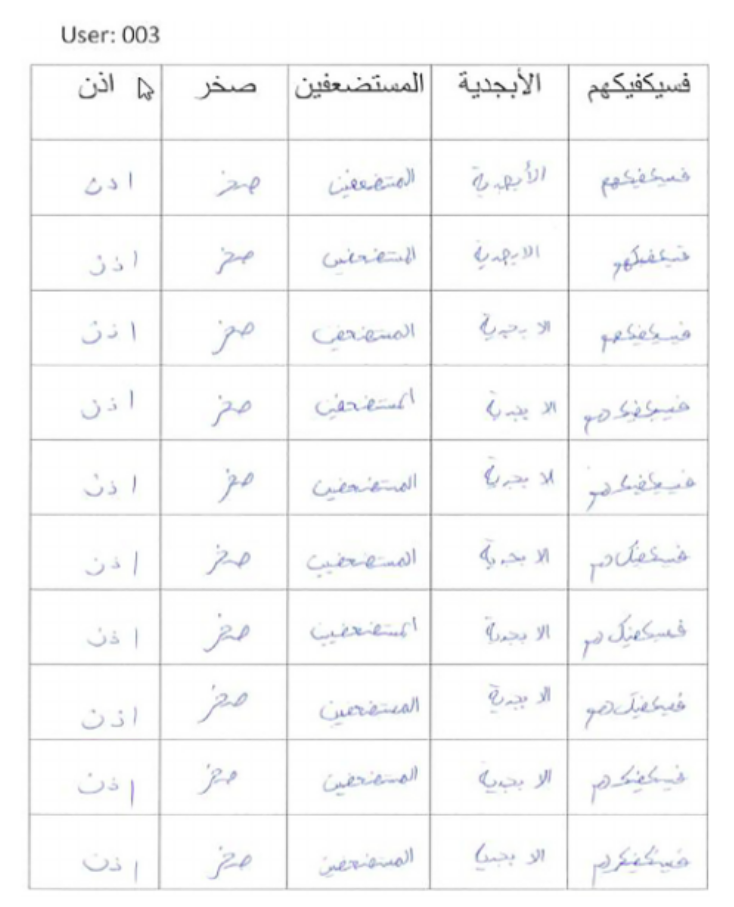 User: 003
فسيكفيكهم الأبجدية المستضعفين صخر اذن
فسيكفيكهم الأبجدية المستضعفين صخر اذن
فسيكفيكهم الابجدية المستضعفين صخر اذن
فسيكفيكهم الابجدية المستضعفين صخر اذن
فسيكفيكهم الابجدية المستضعفين صخر اذن
فسيكفيكهم الابجدية المستضعفين صخر اذن
فسيكفيكهم الابجدية المستضعفين صخر اذن
فسيكفيكهم الابجدية المستضعفين صخر اذن
فسيكفيكهم الابجدية المستضعفين صخر اذن
فسيكفيكهم الابجدية المستضعفين صخر اذن
فسيكفيكهم المستضعفين صخر اذن